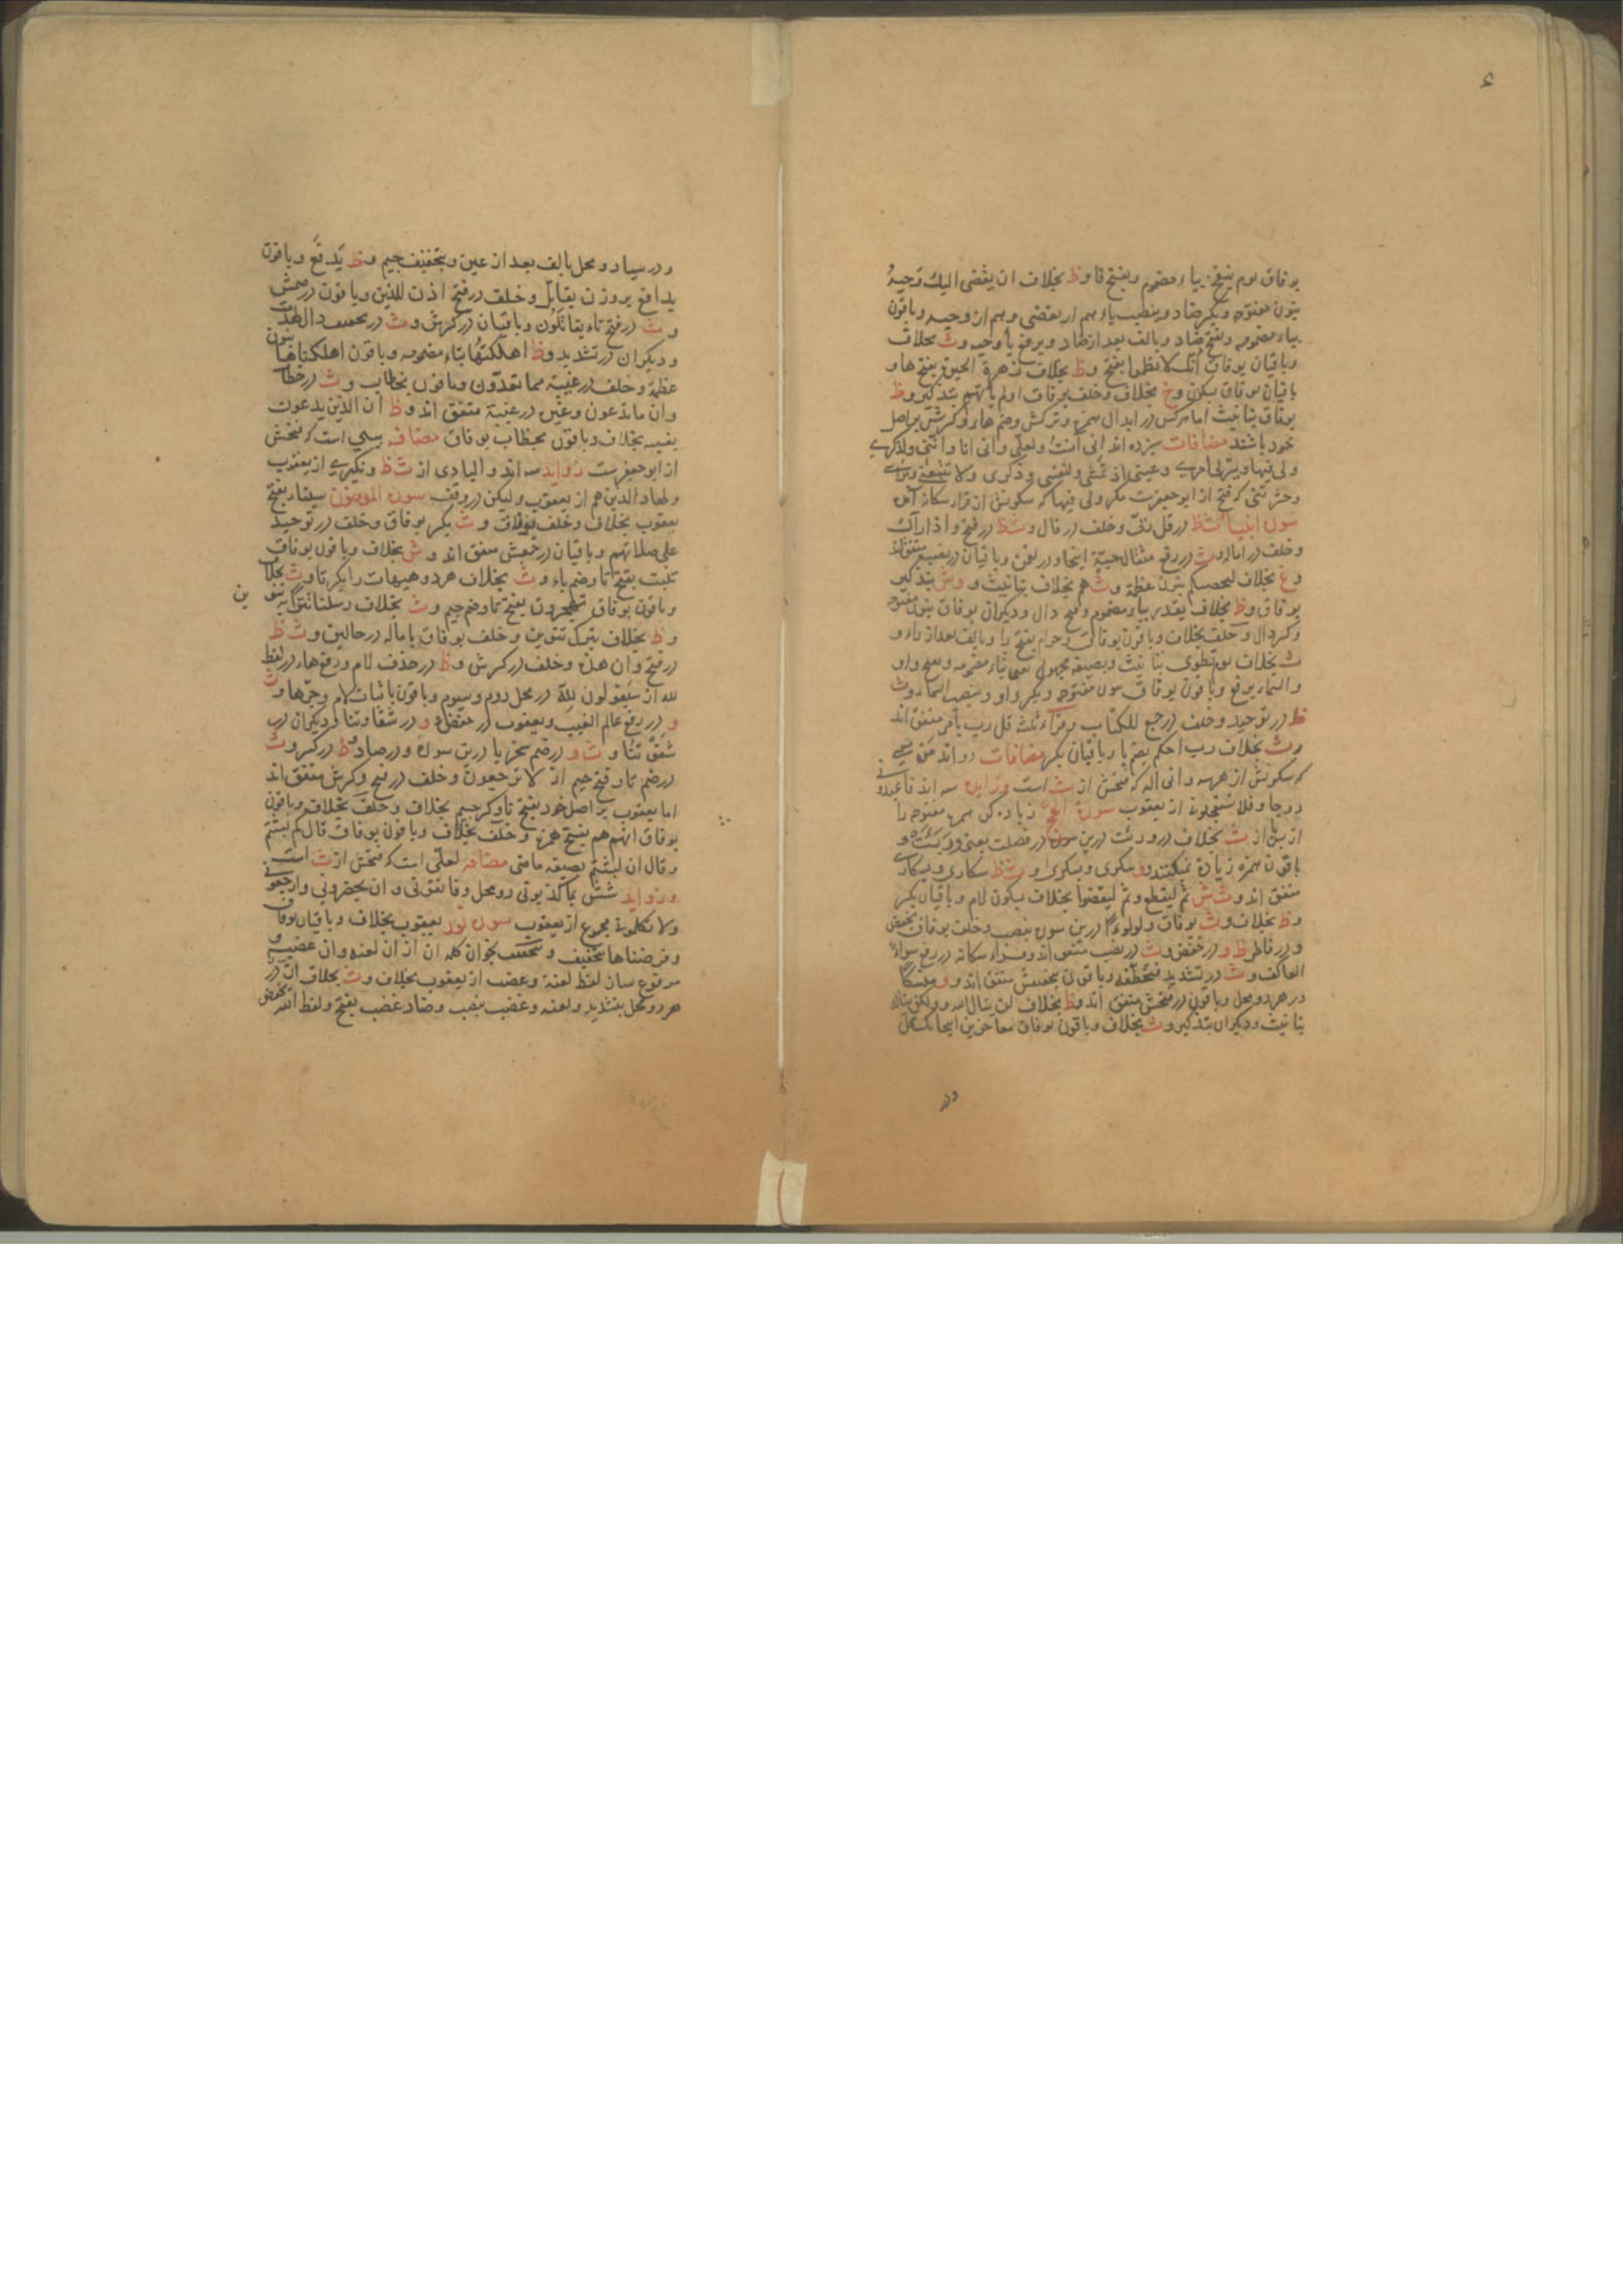 بوفاق يوم ينفخ بياء مضموم وبفتح فا و ظ بخلاف ان يقضى اليك وحيهُ
بنون مفتوحه وبكسر ضاد وبنصب ياء هم از يقضى وهم از وحيه وباقون
بياء مضمومه وبفتح ضاد وبالف بعد از ضاد وبرفع ياء وحيه و ث بخلاف
وباقيان بوفاق انك لا تظموا بفتح و ظ بخلاف زهرة الحيوة بفتح ها و
باقيان بوفاق بسكون و خ بخلاف وخلف بوفاق اولم ياتهم بتذكير و ظ
بوفاق بتانيث اما هركس در ابدال همزه وتركش وضم هاء وكسرش بر اصل
خود باشند مضافات سيزده اند انى آنست ولعلى وانى انا واننى ولذكرى
ولى فيها ويسرلى امرى وعينى اذ تمشى ولنفسى وذكرى ولا
وحشرتنى كه فتح از ابوجعفرست مكر ولى فيها كه سكونش از قرار سكانه اس
سورة انبيا ث ظ در قل ربى وخلف در قال و ث ظ در فتح واذا رآك
وخلف در اماله و ث در رفع مثقال حبة اينجا ودر لقمن وباقيان در نصب متفق اند
و غ بخلاف لنحصنكم بنون عظمة و ث هم بخلاف بتانيث و و ش بتذكير
بوفاق و ظ بخلاف يقدر بياء مضموم وفتح دال وديكران بوفاق بنون مفتوحه
وكسر دال وخلف بخلاف وباقون بوفاق وحرام بفتح را وبالف بعد از راء و
ث بخلاف يوم تطوى بتانيث وبصيغه مجهول يعنى بتاء مضمومه وبفتح واو
والسماء برفع وباقون بوفاق بنون مفتوحه وبكسر واو وبنصب السماء و ث
ظ در توحيد وخلف در جمع للكتاب وقراء ثلثه قل رب بامر متفق اند
و ث بخلاف رب احكم بضم با وباقيان بكسر مضافات دو اند من معى
كه سكونش از هر سه وانى اله كه فتحش از ث است وزوايد سه اند فاعبدونى
در دو جا وفلا تستعجلون از يعقوب سورة الحج زياده كن همزه مفتوحه را
از بهر از ث بخلاف در وربت درين سورة ودر فصلت يعنى وربئت و
باقون همزه زيادة نميكنند و و سكرى وبسكرى و ث ظ سكارى وبسكارى
متفق اند و ث ش ثم ليقطع وثم ليقضوا بخلاف بسكون لام وباقيان بكسر
و ظ بخلاف و ث بوفاق ولولوءا درين سوره بنصب وخلف بوفاق بخفض
ودر فاطر ظ و در خفض و ث در نصب متفق اند وقراء سكانه در رفع سواء
العاكف و ث در تشديد فتخطفه وباقون بتخفيفش متفق اند و و منسكا
در هر دو محل وباقون در فتحش متفق اند و ظ بخلاف لن ينال الله ولكن يناله
بتانيث وديكران بتذكير و ث بخلاف وباقون بوفاق معاجزين اينجا بيك محل
ودر
ودر سبا دو محل بالف بعد از عين وبتخفيف جيم و ظ يدفع وباقون
يدافع بروزن يقاتل وخلف در فتح اذن للذين وباقون در ضمش
و ث در فتح تاء يقاتلون وباقيان در كسرش و ث در تخفيف دال لهدمت
وديكران در تشديد و ظ اهلكتها بتاء مضمومه وباقون اهلكناها بنون
عظمة وخلف در غيبة مما تعدون وباقون بخطاب و ث در خطاب
وان ما تدعون وغيرش در غيبة متفق اند و ظ ان الذين يدعون
بغيبه بخلاف وباقون بخطاب بوفاق مضافه بيتى است كه فتحش
از ابوجعفرست زوايد سه اند والبادى از ث ظ ونكيرى از يعقوب
ولهاد الذين هم از يعقوب وليكن در وقف سورة المومنون سيناء بفتح
يعقوب بخلاف وخلف بوفاق و ث بكسر بوفاق وخلف در توحيد
على صلاتهم وباقيان در جمعش متفق اند و ش بخلاف وباقون بوفاق
تنبت بفتح تا وضم باء و ث بخلاف هر دو هيهات را بكسر تا و ث بخلاف
وباقون بوفاق تهجرون بفتح تا وضم جيم و ث بخلاف رسلنا تترا بتنو
ين
و ظ بخلاف بترك تنوين وخلف بوفاق باماله در حالين و ث ظ
در فتح وان هذه وخلف در كسرش و ظ در حذف لام ورفع هاء در لفظ
لله از سيقولون لله در محل دوم وسيوم وباقون باثبات لام وجر ها و ث
و در رفع عالم الغيب ويعقوب در خفضش و در شقاوتنا وديكران در
شقوتنا و ث و در ضم سخريا درين سورة ودر صاد و ظ در كسر و ث
در ضم تا وفتح جيم از لا ترجعون وخلف در فتح وكسرش متفق اند
اما يعقوب بر اصل خود بفتح تا وكسر جيم بخلاف وخلف بخلاف وباقون
بوفاق انهم هم بفتح همزه وخلف بخلاف وباقون بوفاق قال كم لبثتم
وقال ان لبثتم بصيغه ماضى مضافه لعلى است كه فتحش از ث است
وزوايد شش بما كذبونى دو محل وفاتقونى وان يحضرونى وارجعونى
ولا تكلمونى مجموع از يعقوب سورة نور يعقوب بخلاف وباقيان بوفاق
وفرضناها بتخفيف و بخوان كلمه ان از ان لعنه وان غضب و
مرفوع ساز لفظ لعنة وغضب از يعقوب بخلاف و ث بخلاف ان را در
هر دو محل بتشديد ولعنه وغضب بنصب وضاد غضب بفتح ولفظ الله بخفض